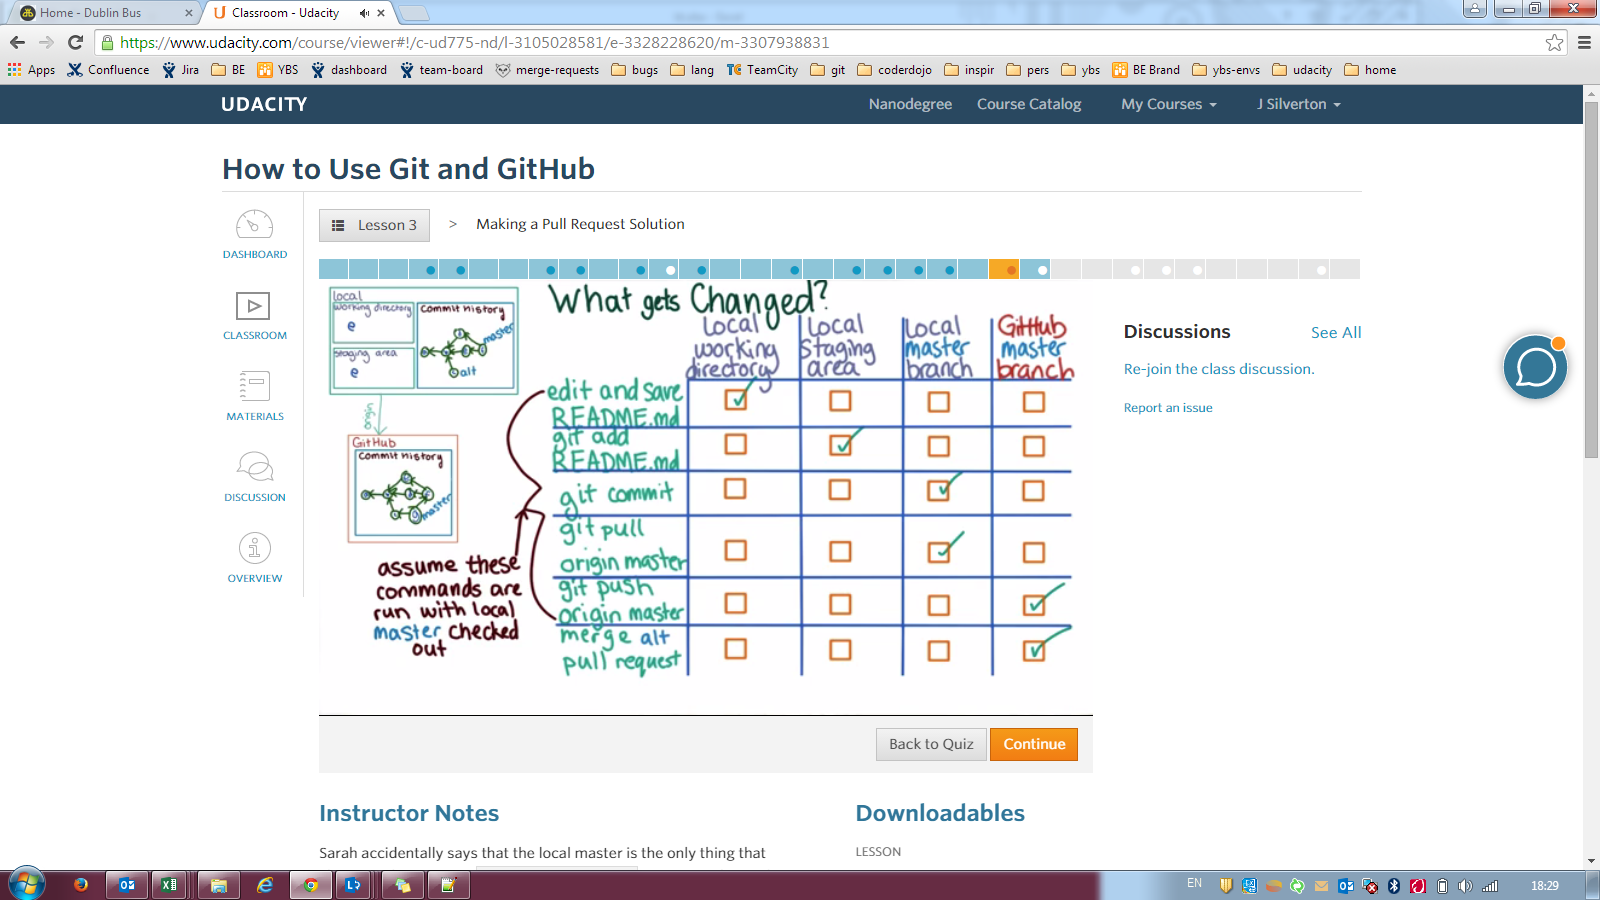 Home - Dublin Bus
Classroom - Udacity
https://www.udacity.com/course/viewer#!/c-ud775-nd/l-3105028581/e-3328228620/m-3307938831
Apps Confluence Jira BE YBS dashboard team-board merge-requests bugs lang TeamCity git coderdojo inspir pers ybs BE Brand ybs-envs udacity home
UDACITY Nanodegree Course Catalog My Courses J Silverton
How to Use Git and GitHub
DASHBOARD
CLASSROOM
MATERIALS
DISCUSSION
OVERVIEW
Lesson 3 > Making a Pull Request Solution
What gets Changed?
local
working directory
e
staging area
e
commit history
master
alt
origin
GitHub
commit history
master
assume these
commands are
run with local
master checked
out
Local
working
directory
Local
Staging
area
Local
master
branch
GitHub
master
branch
edit and save
README.md
git add
README.md
git commit
git pull
origin master
git push
origin master
merge alt
pull request
Discussions See All
Re-join the class discussion.
Report an issue
Back to Quiz Continue
Instructor Notes
Sarah accidentally says that the local master is the only thing that
Downloadables
LESSON
EN
18:29